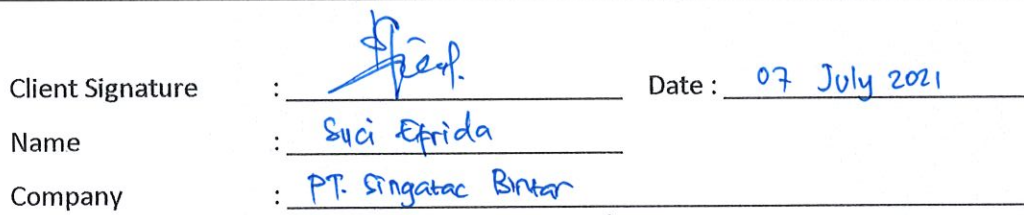 Client Signature : Date : 07 July 2021
Name : Suci Efrida
Company : PT. Singatac Bintan